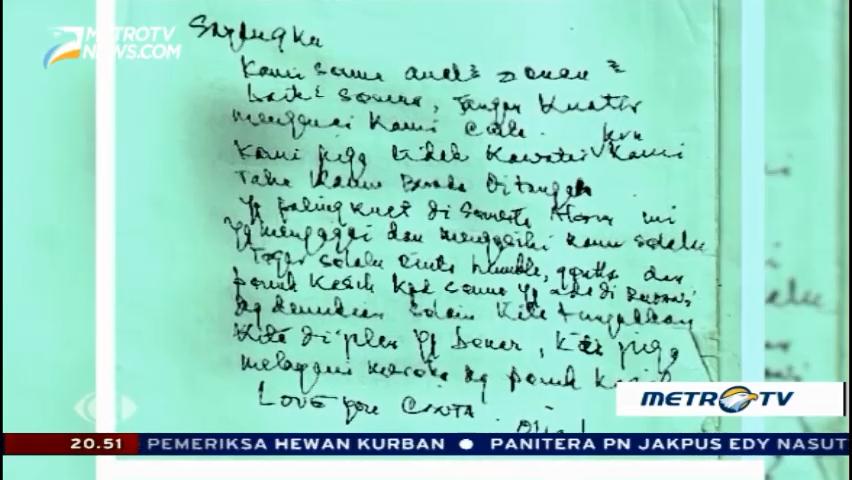 METROTV
NEWS.COM
Sayangku
Kami semua anak² Zonen²
baik² semua, Jangan Kuatir
mengenai Kami Cole. krn
Kami juga tidak Kawatir Kami
Tahu Kamu Berada Ditangan
yg paling kuat di Semesta Alam ini
yg menjaga dan mengasihi kamu selalu
Tetap selalu cinta humble, gentle dan
penuh Kasih Kpd semua yg ada di
dg demikian selain Kita
Kita di yg benar, Kita juga
melayani mereka dg penuh Kasih
LOVE you CINTA
METRO TV
20.51 PEMERIKSA HEWAN KURBAN ● PANITERA PN JAKPUS EDY NASUT